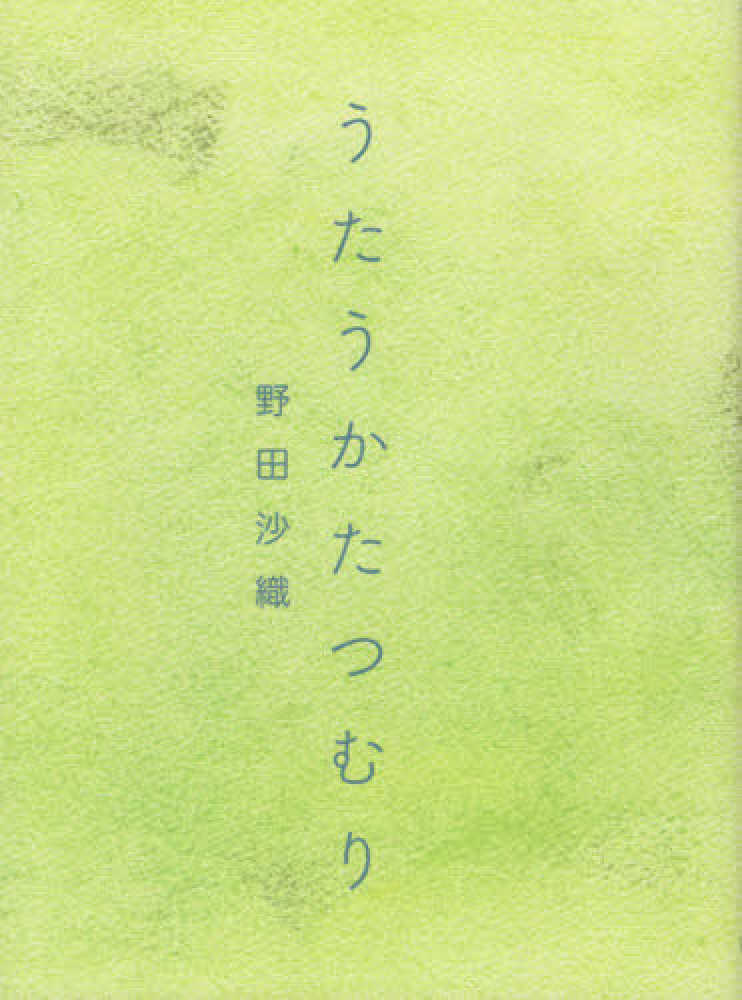 うたうかたつむり
野田沙織